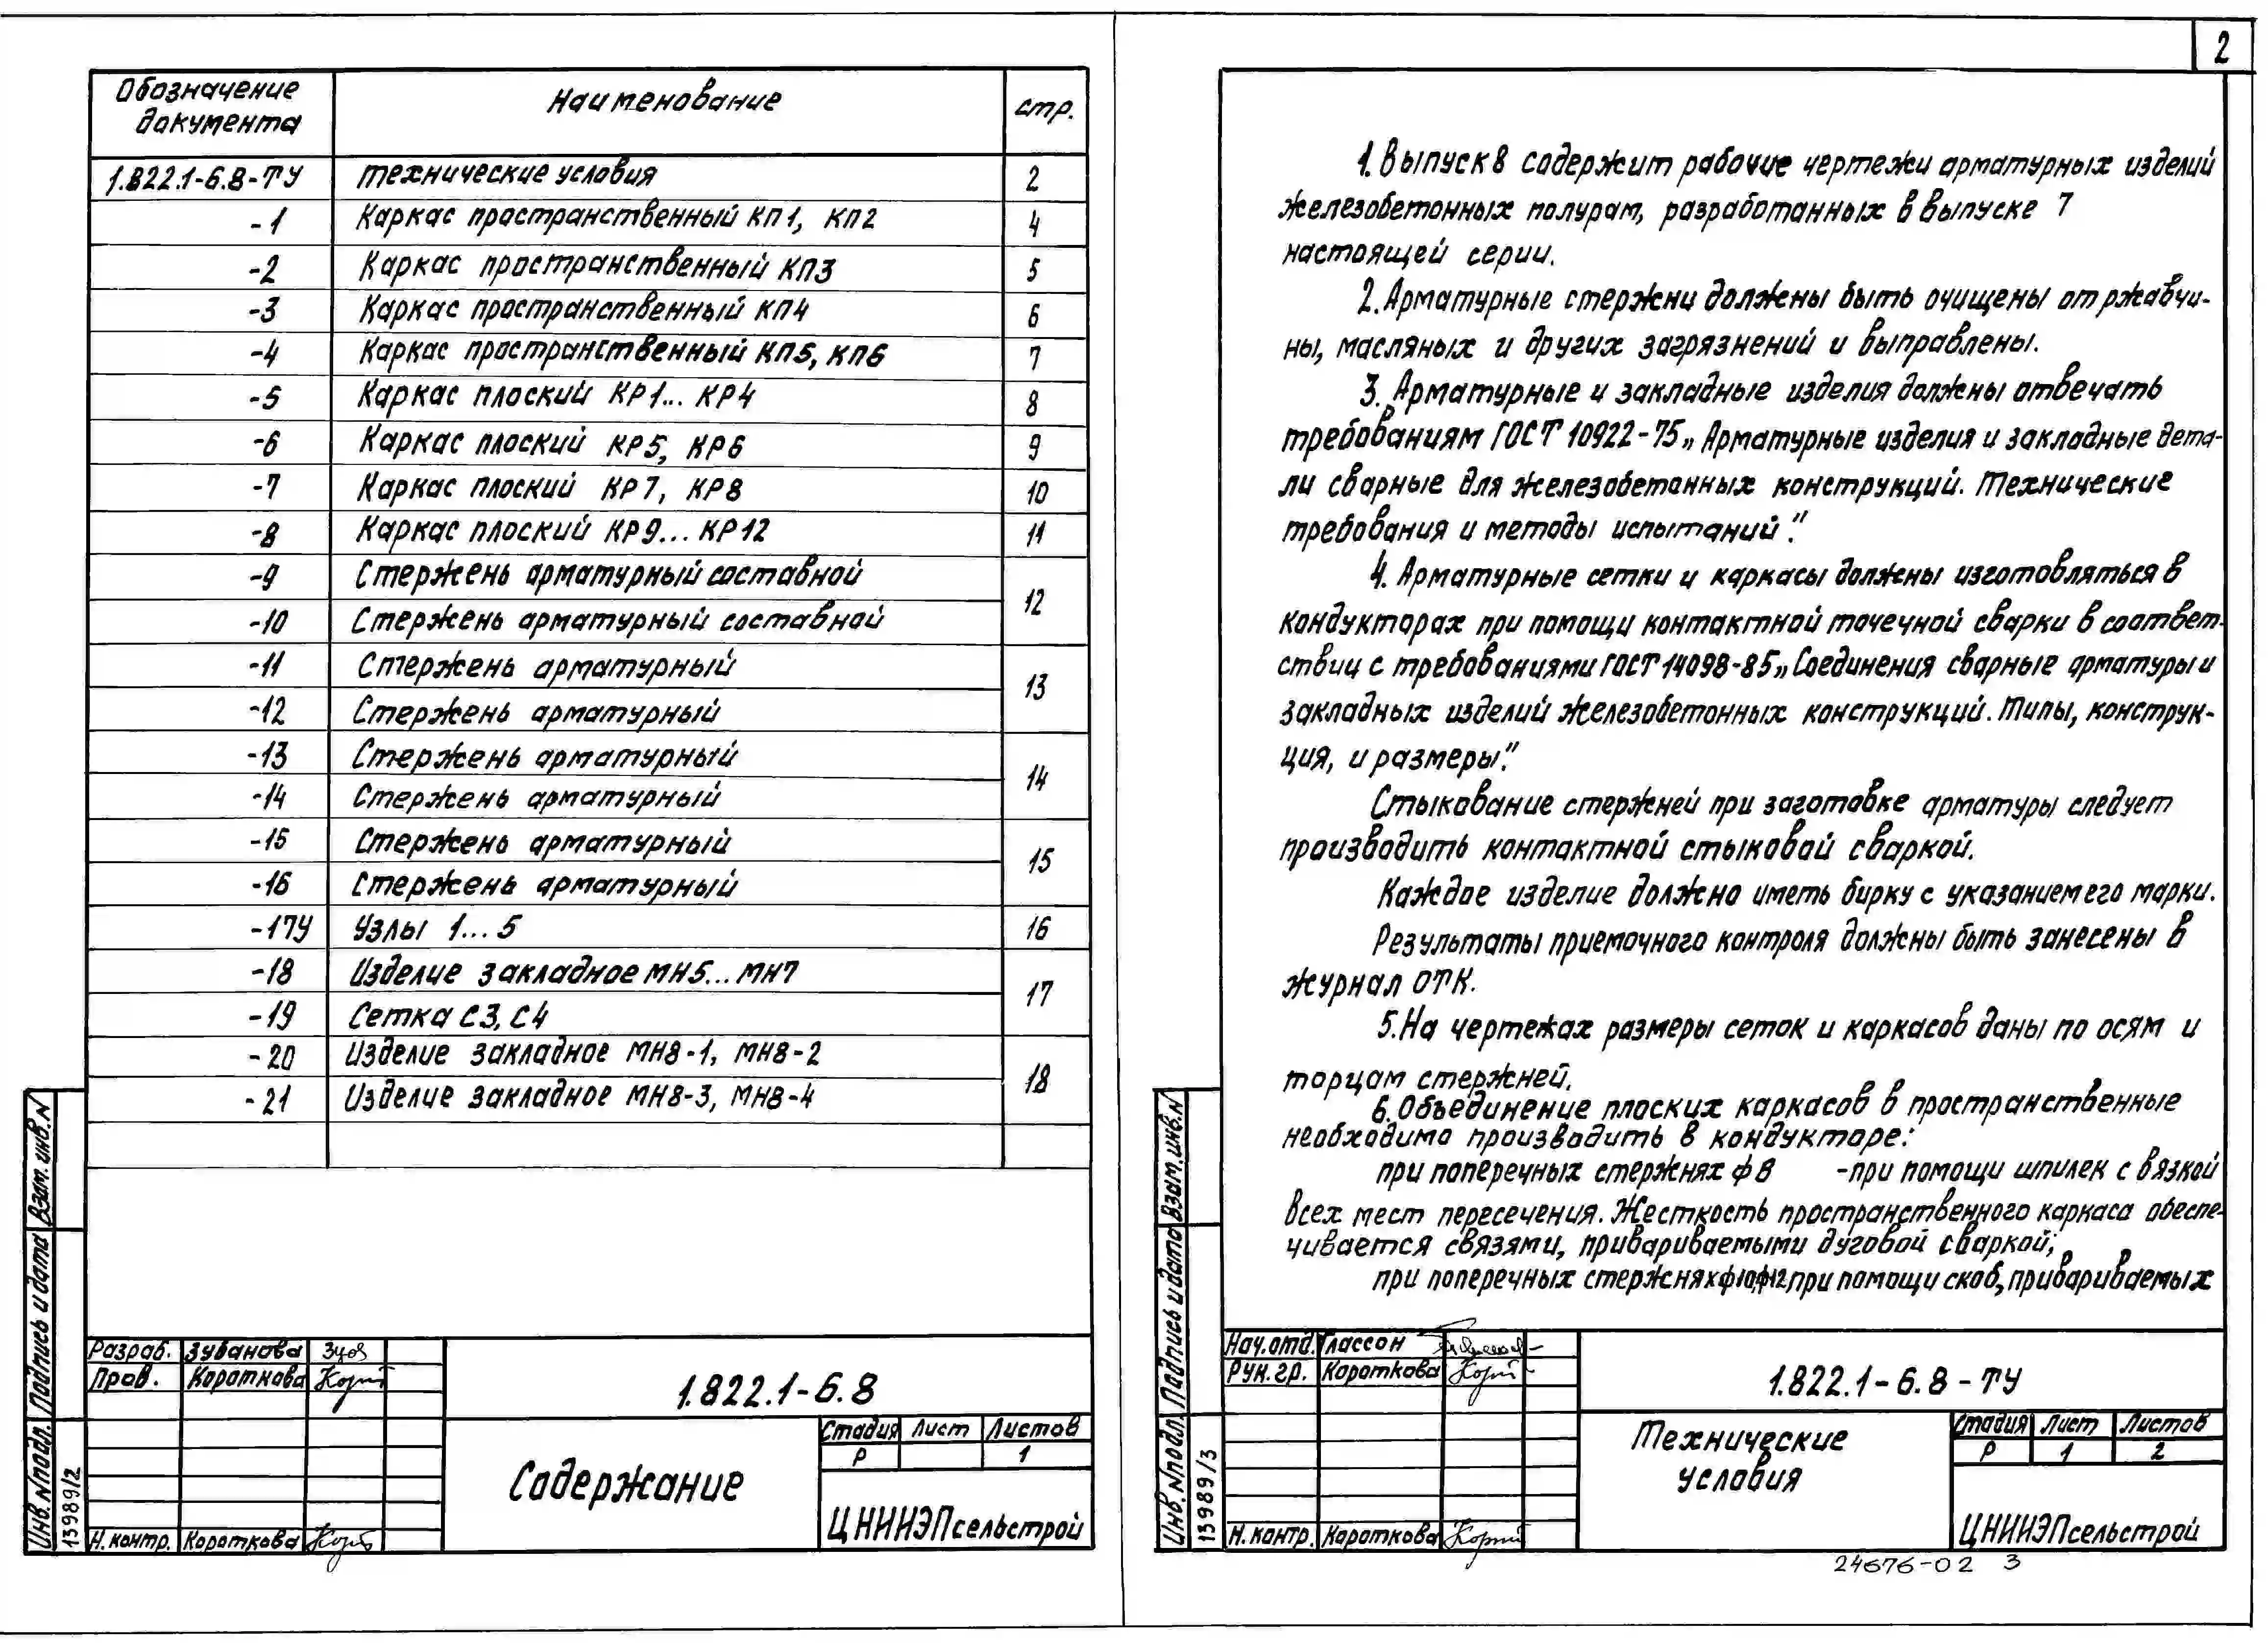 Обозначение документа Наименование стр.
1.822.1-6.8-ТУ Технические условия 2
-1 Каркас пространственный КП1, КП2 4
-2 Каркас пространственный КП3 5
-3 Каркас пространственный КП4 6
-4 Каркас пространственный КП5, КП6 7
-5 Каркас плоский КР1... КР4 8
-6 Каркас плоский КР5, КР6 9
-7 Каркас плоский КР7, КР8 10
-8 Каркас плоский КР9... КР12 11
-9 Стержень арматурный составной 12
-10 Стержень арматурный составной
-11 Стержень арматурный 13
-12 Стержень арматурный
-13 Стержень арматурный 14
-14 Стержень арматурный
-15 Стержень арматурный 15
-16 Стержень арматурный
-17У Узлы 1...5 16
-18 Изделие закладное МН5...МН7 17
-19 Сетка С3, С4
-20 Изделие закладное МН8-1, МН8-2 18
-21 Изделие закладное МН8-3, МН8-4
Взам. инв. N
Подпись и дата
Инв. N подл. 13989/2
Разраб. Зубанова
Пров. Короткова
Н. контр. Короткова
1.822.1-6.8
Содержание
Стадия Лист Листов
Р 1
ЦНИИЭПсельстрой
2
1. Выпуск 8 содержит рабочие чертежи арматурных изделий
железобетонных полурам, разработанных в выпуске 7
настоящей серии.
2. Арматурные стержни должены быть очищены от ржавчи-
ны, масляных и других загрязнений и выправлены.
3. Арматурные и закладные изделия должны отвечать
требованиям ГОСТ 10922-75 „Арматурные изделия и закладные дета-
ли сварные для железобетонных конструкций. Технические
требования и методы испытаний".
4. Арматурные сетки и каркасы должны изготовляться в
кондукторах при помощи контактной точечной сварки в соответ-
ствии с требованиями ГОСТ 14098-85 „Соединения сварные арматуры и
закладных изделий железобетонных конструкций. Типы, конструк-
ция, и размеры".
Стыкование стержней при заготовке арматуры следует
производить контактной стыковой сваркой.
Каждое изделие должно иметь бирку с указанием его марки.
Результаты приемочного контроля должны быть занесены в
журнал ОТК.
5. На чертежах размеры сеток и каркасов даны по осям и
торцам стержней.
6. Объединение плоских каркасов в пространственные
необходимо производить в кондукторе:
при поперечных стержнях ф 8 -при помощи шпилек с вязкой
всех мест пересечения. Жесткость пространственного каркаса обеспе-
чивается связями, привариваемыми дуговой сваркой;
при поперечных стержнях ф10,ф12, при помощи скоб, привариваемых
Взам. инв. N
Подпись и дата
Инв. N подл. 13989/3
Нач. отд. Глассон
Рук. гр. Короткова
Н. контр. Короткова
1.822.1-6.8-ТУ
Технические
условия
Стадия Лист Листов
Р 1 2
ЦНИИЭПсельстрой
24676-02 3